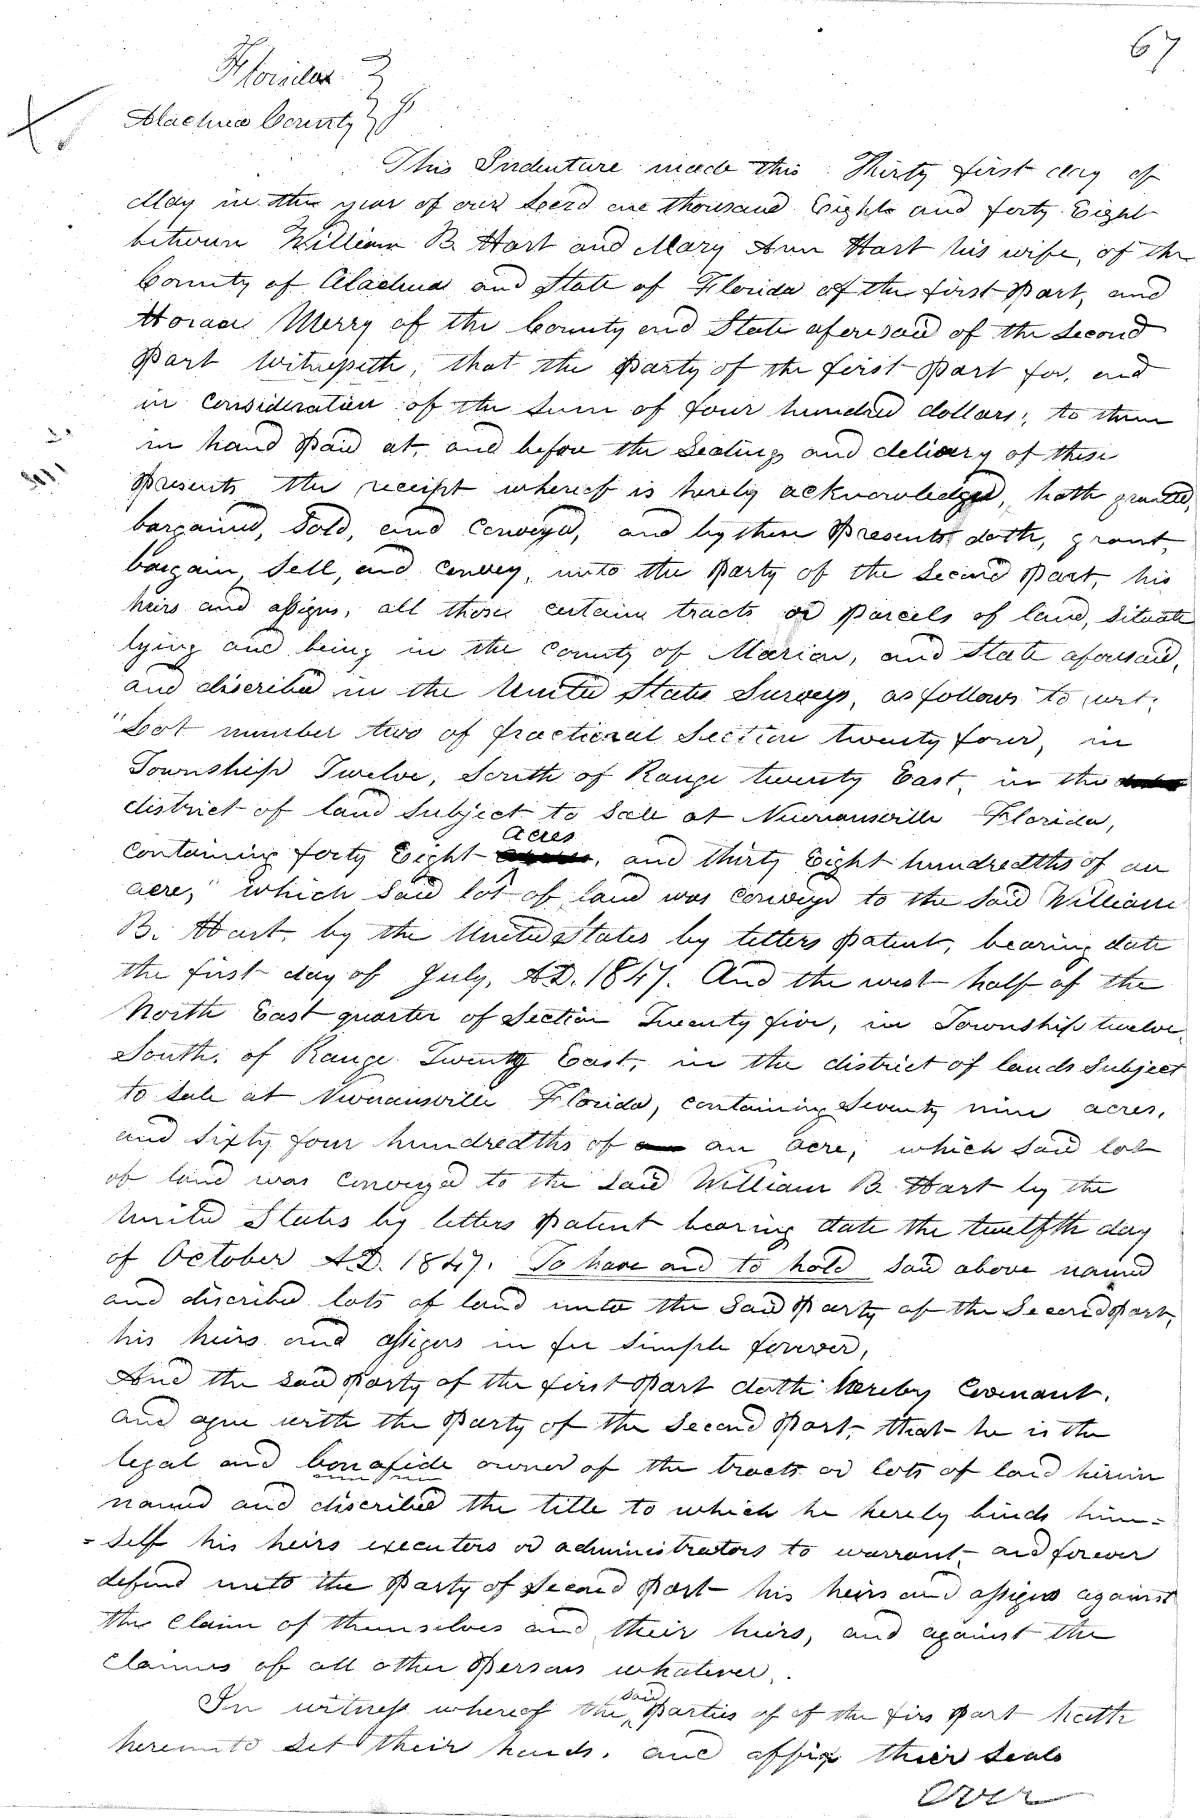 67
Florida
Alachua County
This Indenture made this Thirty first day of
May in the year of our Lord one thousand Eight and forty Eight
between William B. Hart and Mary Ann Hart his wife, of the
County of Alachua and State of Florida of the first part, and
Horace Merry of the County and State aforesaid of the second
Part Witnesseth, that the Party of the first part for, and
in consideration of the sum of four hundred dollars, to them
in hand Paid at, and before the Sealing and delivery of these
Presents, the receipt whereof is hereby acknowledged, hath granted,
bargained, Sold, and Conveyed, and by these Presents doth, grant,
bargain, Sell, and Convey, unto the Party of the Second part, his
heirs and assigns, all those certain tracts or parcels of land, situate
lying and being in the County of Marion, and State aforesaid,
and discribed in the United States Surveys, as follows to wit:
"Lot number two of fractional Section twenty four, in
Township Twelve, South of Range twenty East, in the
district of land Subject to Sale at Newnansville Florida,
containing forty Eight acres, and thirty Eight hundredths of an
acre," which said lot of land was conveyd to the said William
B. Hart, by the United States by letters Patent, bearing date
the first day of July, A.D. 1847. And the west half of the
North East quarter of Section Twenty five, in Township twelve,
South, of Range Twenty East, in the district of lands Subject
to Sale at Newnansville Florida, containing Seventy nine acres,
and sixty four hundredths of an acre, which said lot
of land was Conveyed to the said William B. Hart by the
United States by letters Patent bearing date the twelfth day
of October A.D. 1847. To have and to hold said above named
and discribed lots of land unto the Said Party of the Second part,
his heirs and assigns in fee simple forever,
And the said Party of the first Part doth hereby Covenant,
and agree with the Party of the Second Part, that he is the
legal and bonafide owner of the tracts or lots of land herein
named and discribed the title to which he hereby binds him=
=self his heirs executers or administrators to warrant and forever
defend unto the Party of Second Part his heirs and assigns against
the Claim of themselves and their heirs, and against the
claims of all other Persons whatever.
In witness whereof the said Parties of of the firs part hath
hereunto set their hands, and affix thier seals
Over